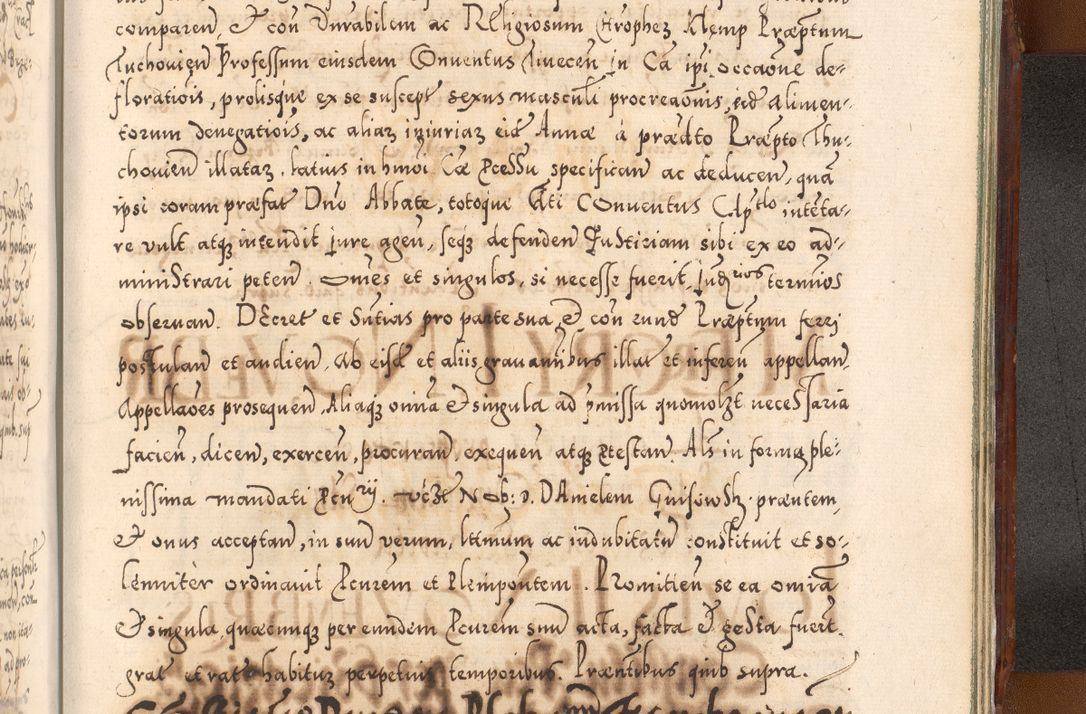 comparen, et con Vurabilem ac Religiosum Chrophez Klemp Præptum
Tuchovien Professum eiusdem Conventus Tuvecen in Ca ipi occaone de=
florationis, prolisque ex se suscept sexus masculi procreaonis, eid alimen=
torum denegationis, ac aliaz iniuriaz eid Annæ à prædto Præpto Thu=
chovien illataz, latius in hmoi Cæ Pcessu specifican ac deducen, quã
ipsi coram præfat Dno Abbate, totoque Conventus intẽta=
re vult atqz intendit jure agen, seqz defenden Justiciam sibi ex eo ad=
ministrari peten. Omēs et singulos, si necesse fuerit, Judrios terminos
observan. Decret et Sntias pro parte sua, et con Præptum ferri
postulan et audien. Ab eisd et aliis gravaminibus illat et inferen appellan
Appellaoes prosequen, Aliaqz omnia et singula ad pmissa quomolzt necessaria
facien, dicen, exercen, procuran, exequen atqz Ptestan. Als in forma ple=
nissima mandati Pcurij. vczt Nob: D. Danielem Guisowsk præntem,
et onus acceptan, in suũ verum, ltimum ac indubitatũ constituit et so=
lenniter ordinavit Pcurem et Plenipontem. Promitien se ea omnia
et singula, quæcunqz per eundem Pcurem suũ acta, facta et gesta fuert.
grat et rat habituz perpetuis temporibus. Præntibus quib supra.